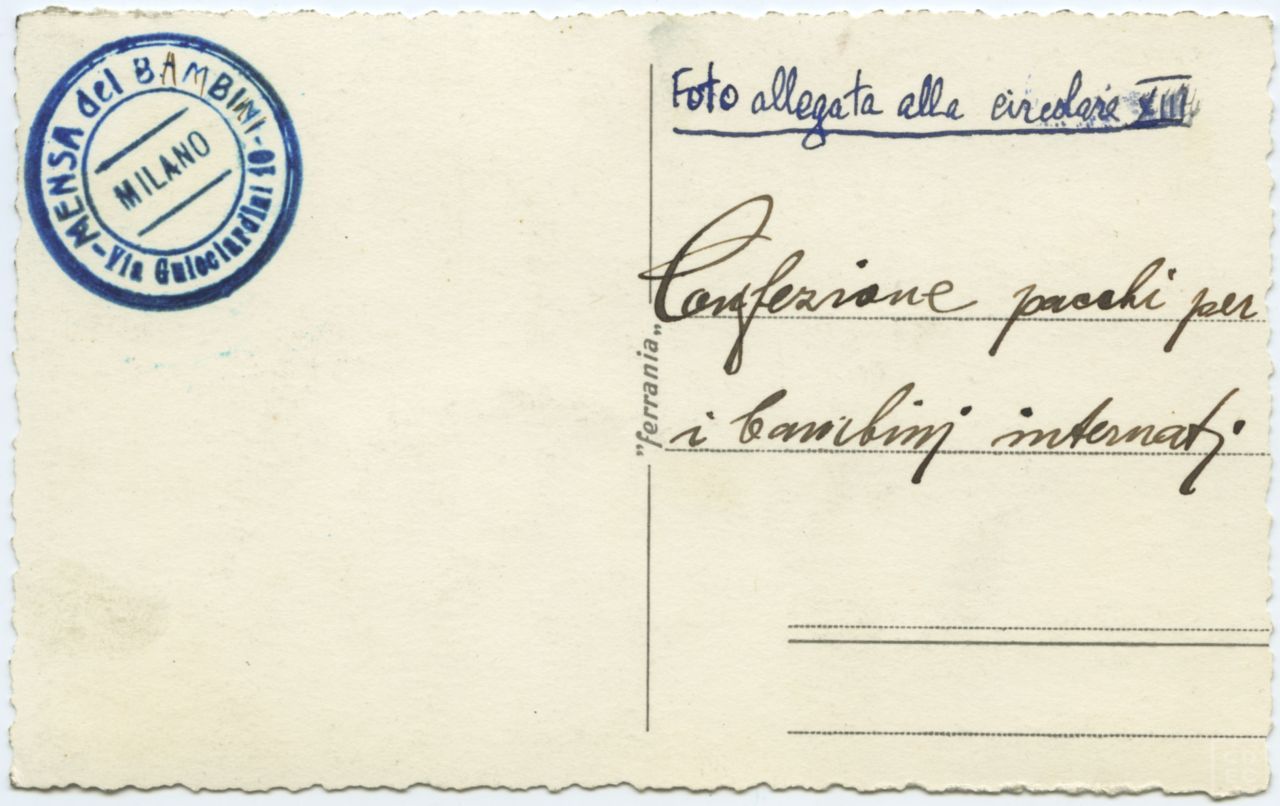 MENSA dei BAMBINI - Via Guicciardini 10 -
MILANO
Foto allegata alla circolare XIII
Confezione pacchi per
i bambini internati
"ferrania"
CDEC